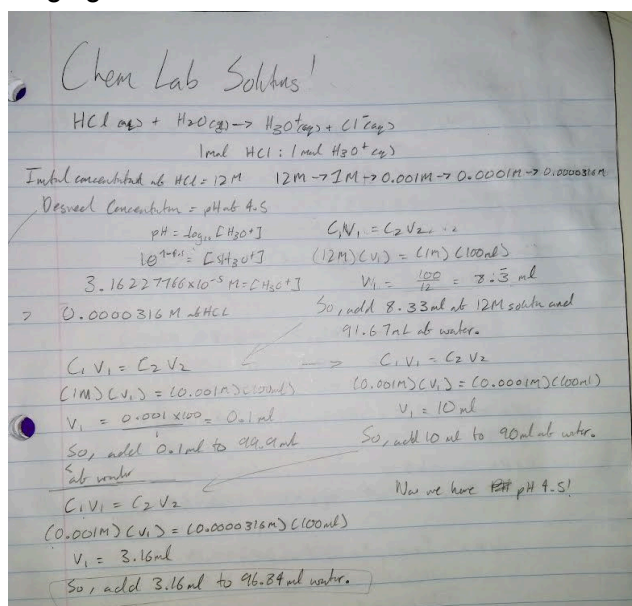 Chem Lab Solutions!
HCl(aq) + H2O(g) -> H3O+(aq) + Cl-(aq)
1mol HCl : 1mol H3O+(aq)
Initial concentration of HCl = 12M 12M -> 1M -> 0.001M -> 0.0001M -> 0.0000316M
Desired Concentration = pH of 4.5
pH = log10 [H3O+]
= [H3O+]
3.16227766x10-5 M = [H3O+]
0.0000316 M of HCl
C1V1 = C2V2
(12M)(V1) = (1M)(100ml)
V1 = 100/12 = 8.3 ml
So, add 8.33ml of 12M solutn and
91.67mL of water.
C1V1 = C2V2
(1M)(V1) = (0.001M)(100ml)
V1 = 0.001 x100/1 = 0.1ml
So, add 0.1ml to 99.9ml
of water
-> C1V1 = C2V2
(0.001M)(V1) = (0.0001M)(100ml)
V1 = 10ml
So, add 10 ml to 90ml of water.
C1V1 = C2V2
(0.001M)(V1) = (0.0000316M)(100ml)
V1 = 3.16ml
So, add 3.16ml to 96.84ml water.
Now we have pH 4.5!